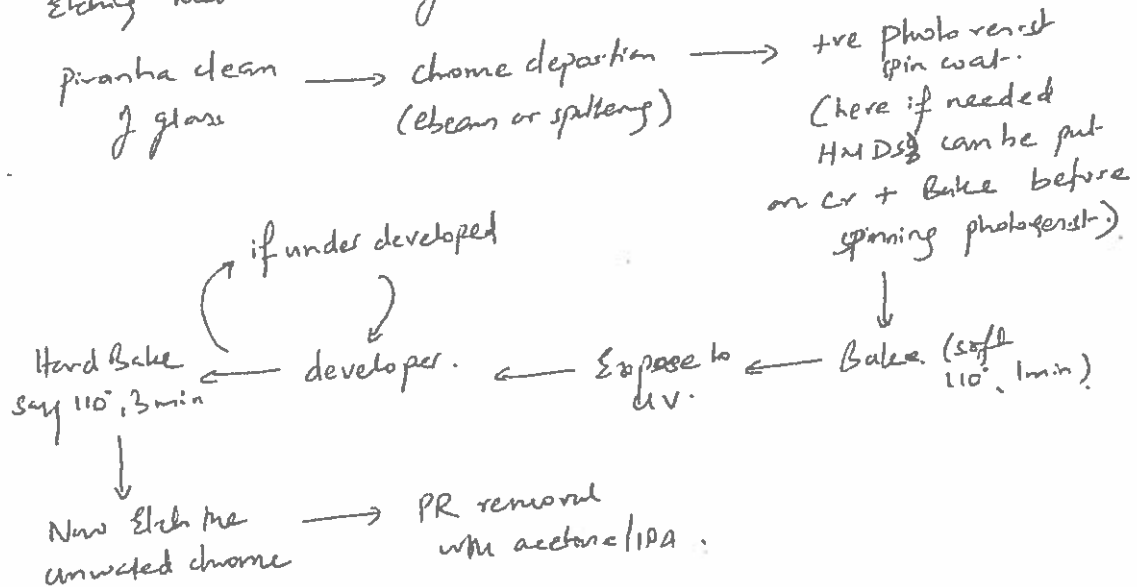 Etching
Piranha clean
of glass
chrome depostion
(ebeam or sputtering)
+ve photo resist
spin coat.
(here if needed
HMDS can be put
on Cr + Bake before
spinning photoresist.)
Bake (soft
110°, 1min)
Expose to
UV.
developer.
if under developed
Hard Bake
say 110°, 3min
Now Etch the
unwanted chrome
PR removal
with acetone/IPA.